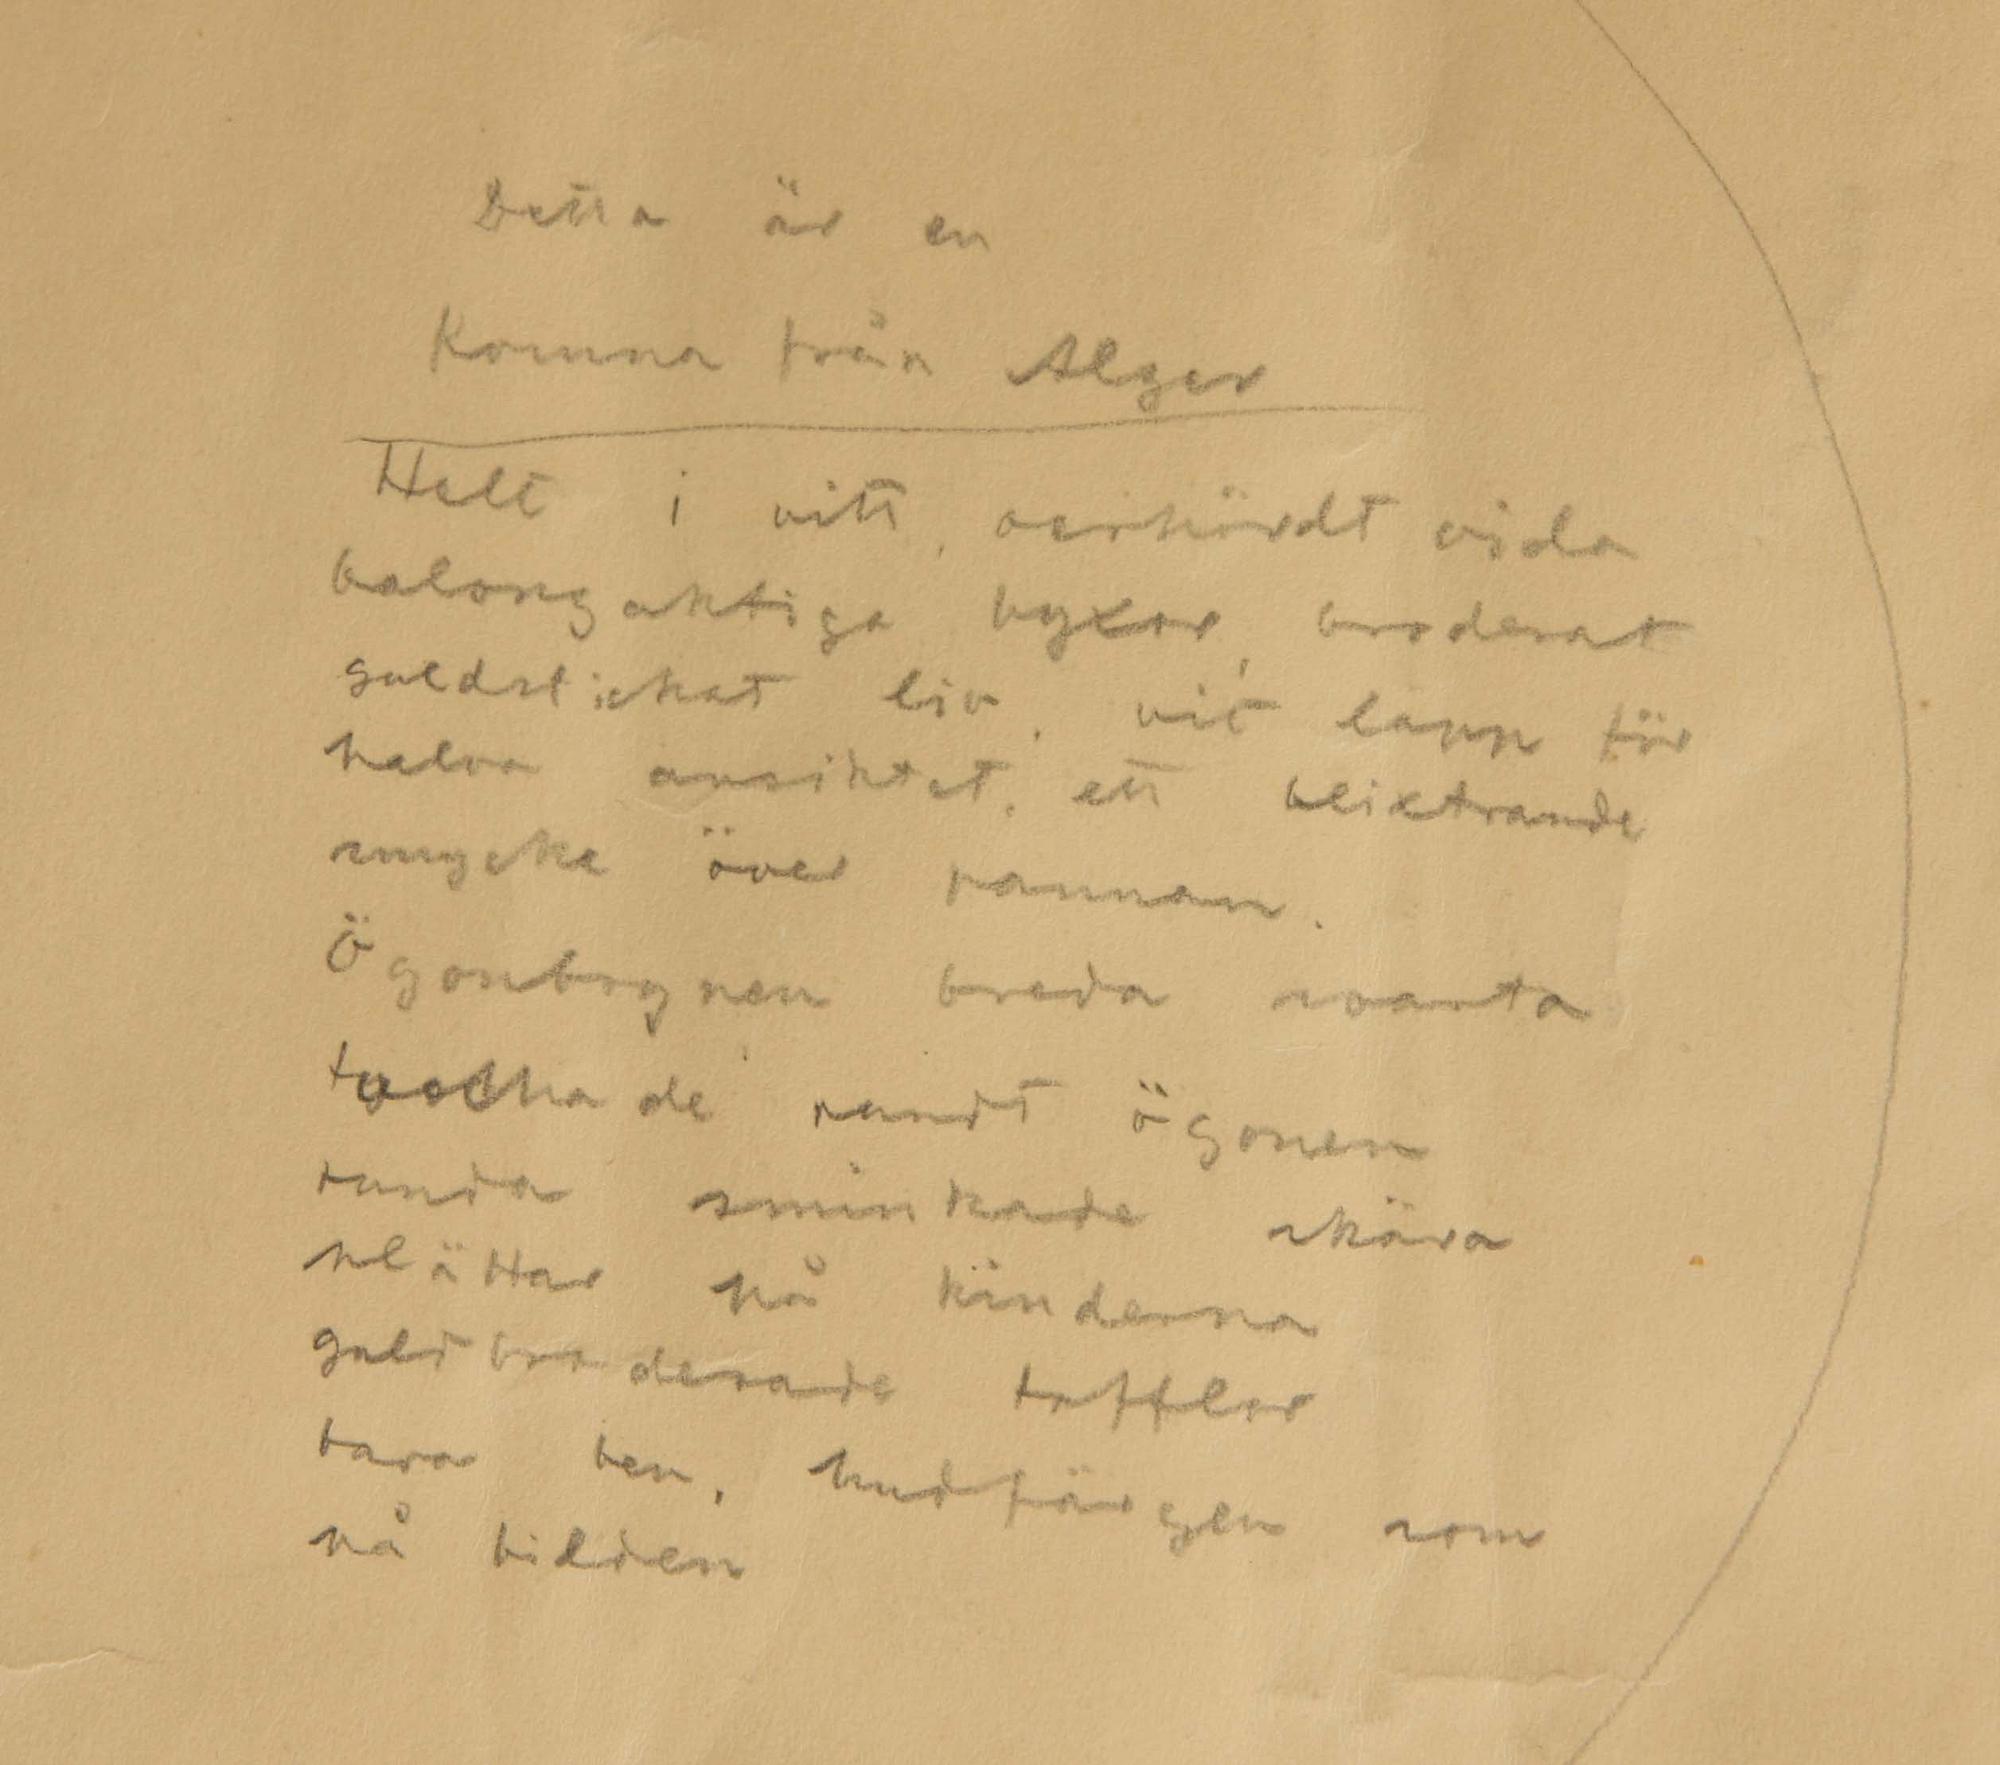 Detta är en
Komna från Alger
Helt i vitt, oerhördt vida
balongaktiga byxor, broderat
guldstickat liv, vit lapp för
halva ansiktet, ett blixtrande
smycke över pannan.
Ögonbrynen breda svarta
tuschade rundt ögonen
runda sminkade skära
plättar på kinderna
guldbroderade tofflor
bara ben, hudfärgen som
på bilden